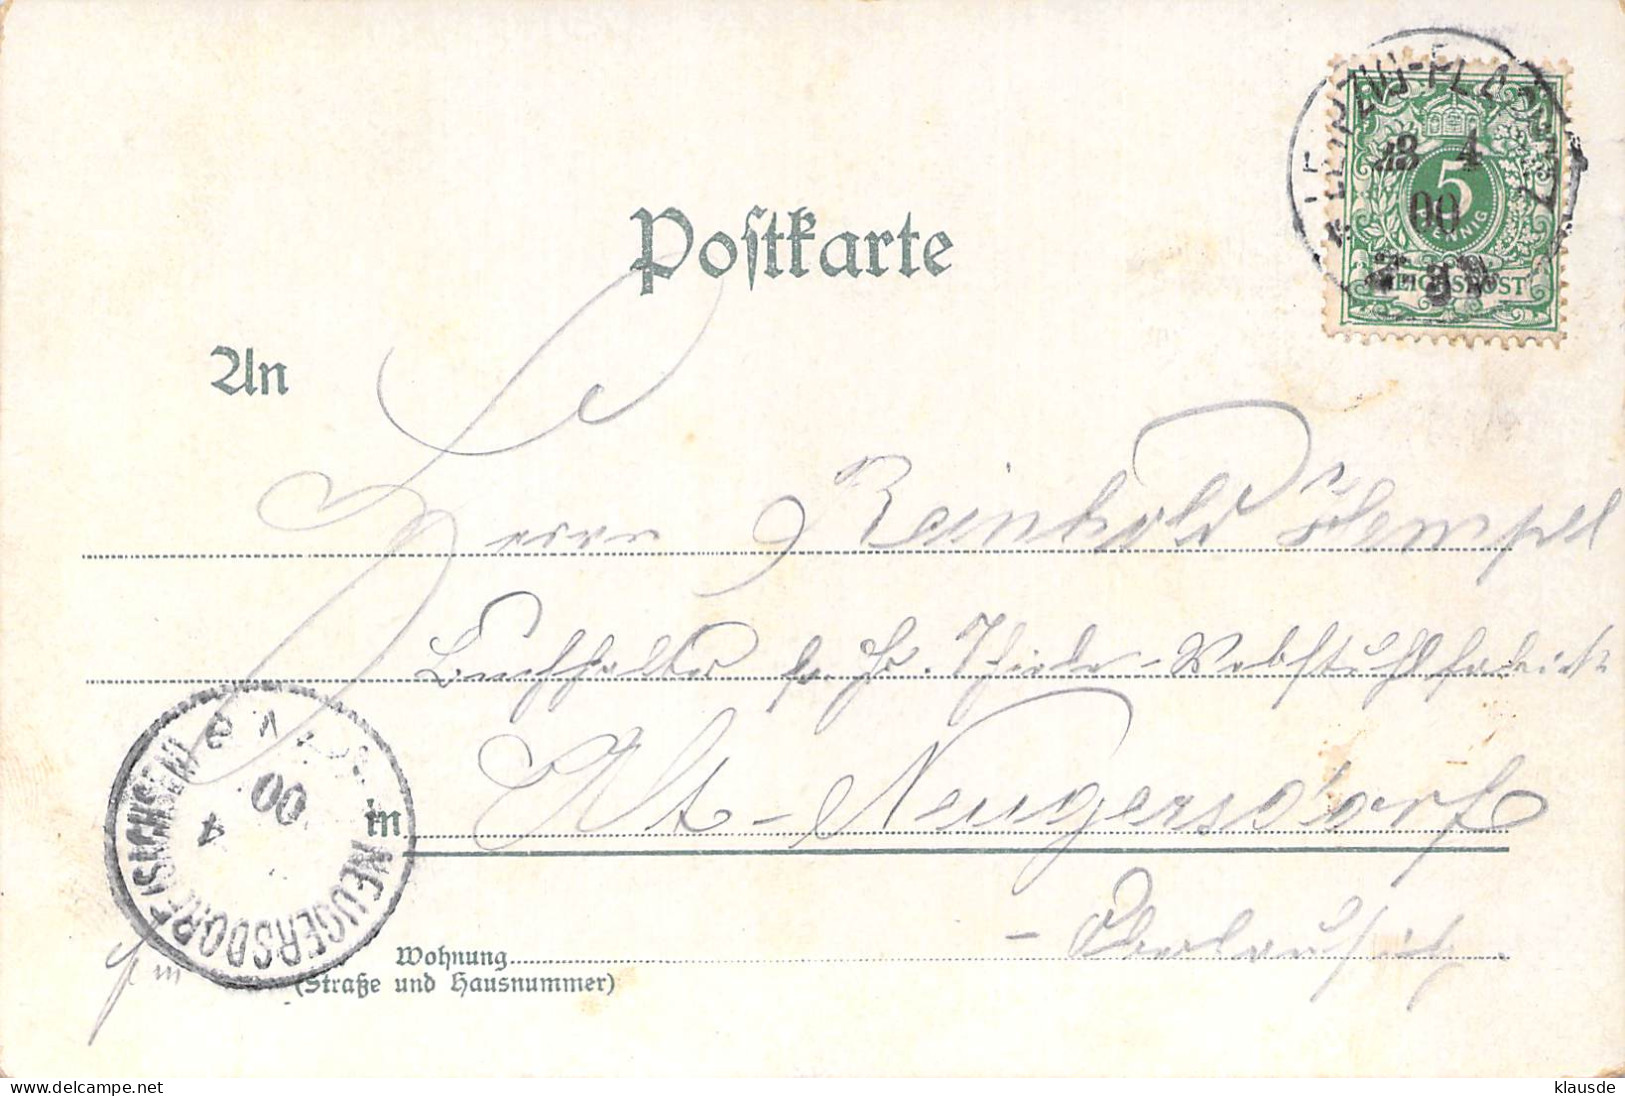 LEIPZIG-PLAGWITZ
28 4
00
5
PFENNIG
REICHSPOST
Postkarte
An
Herrn Reinhold Hempel
Buchhalter
Webstuhlfabrik
Alt-Neugersdorf
in
- Oberlausitz.
NEUGERSDORF (SACHSEN)
4
00
Wohnung
(Straße und Hausnummer)
delcampe.net
klausde